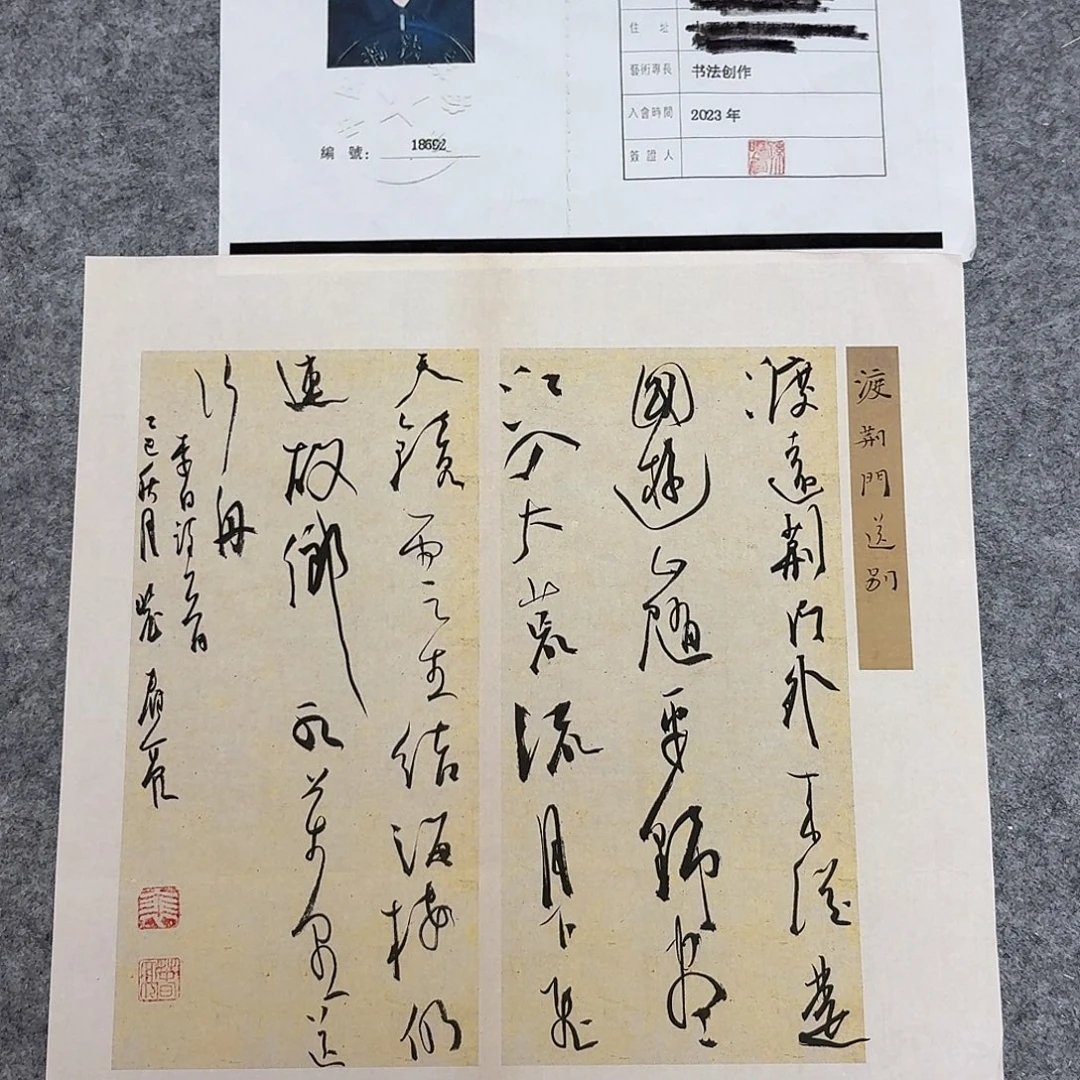 住 址
藝術專長 书法创作
入會時間 2023 年
簽證人
編 號: 18692
渡荊門送别
渡遠荊门外来從楚
國遊山隨平野盡
江入大荒流月下飛
天鏡雲生結海樓仍
連故鄉水萬里送
行舟
李白诗一首
乙巳秋月